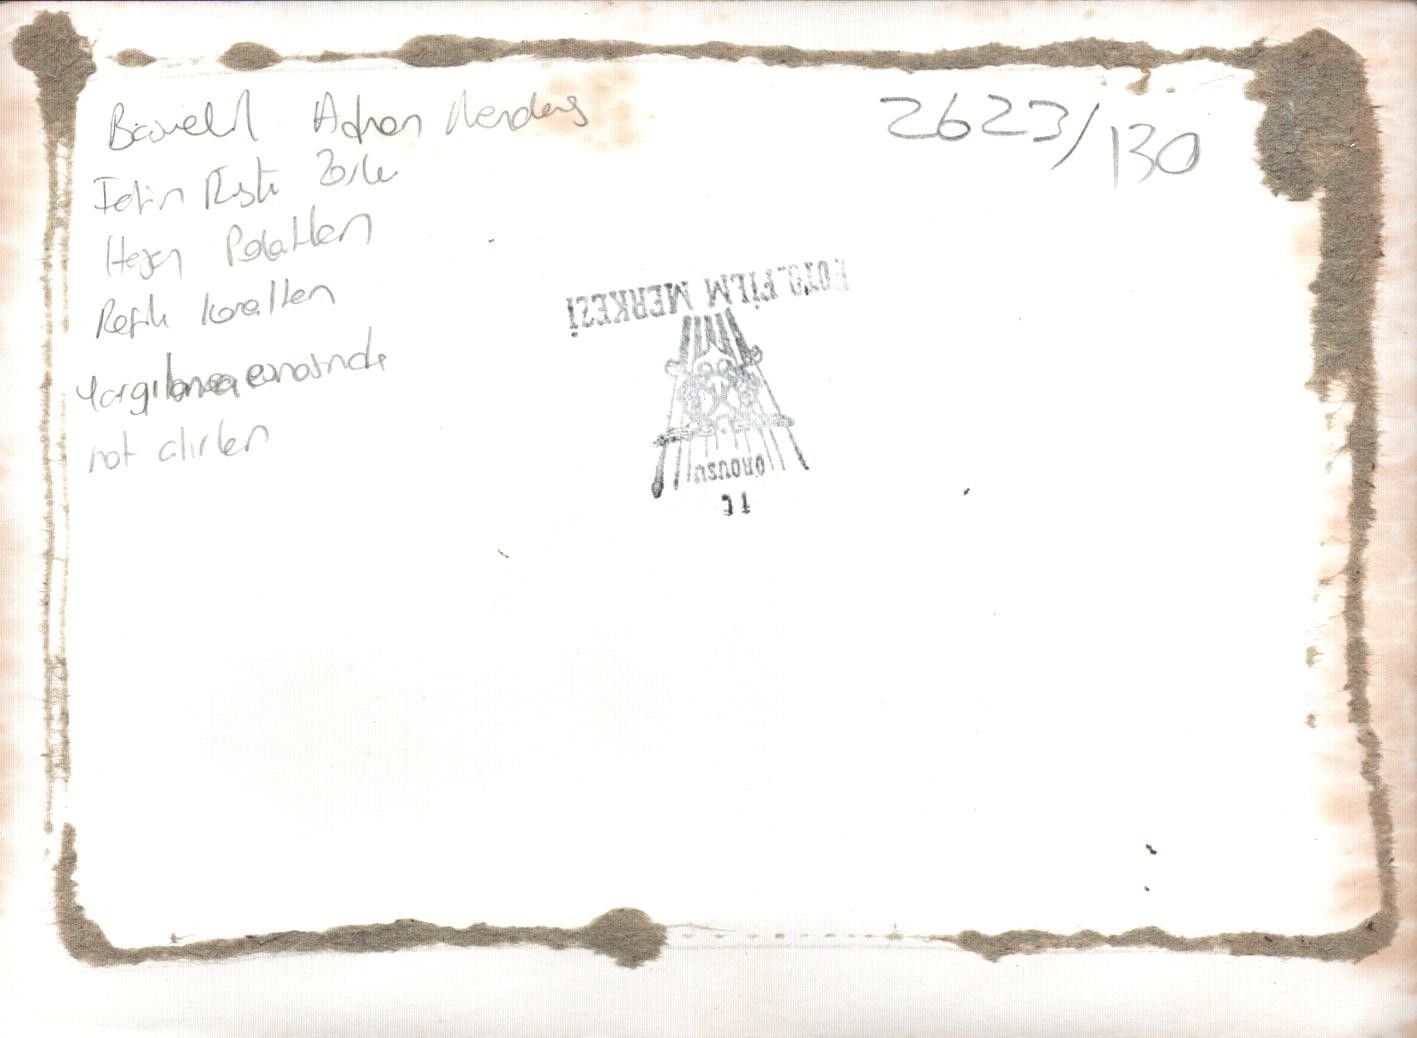 Başvekil Adnan Menderes
Fatin Rüştü Zorlu
Hasan Polatkan
Refik Koraltan
yargılanma esnasında
not alırken
2623/130
FOTO FİLM MERKEZİ
ORDUSU
T.C